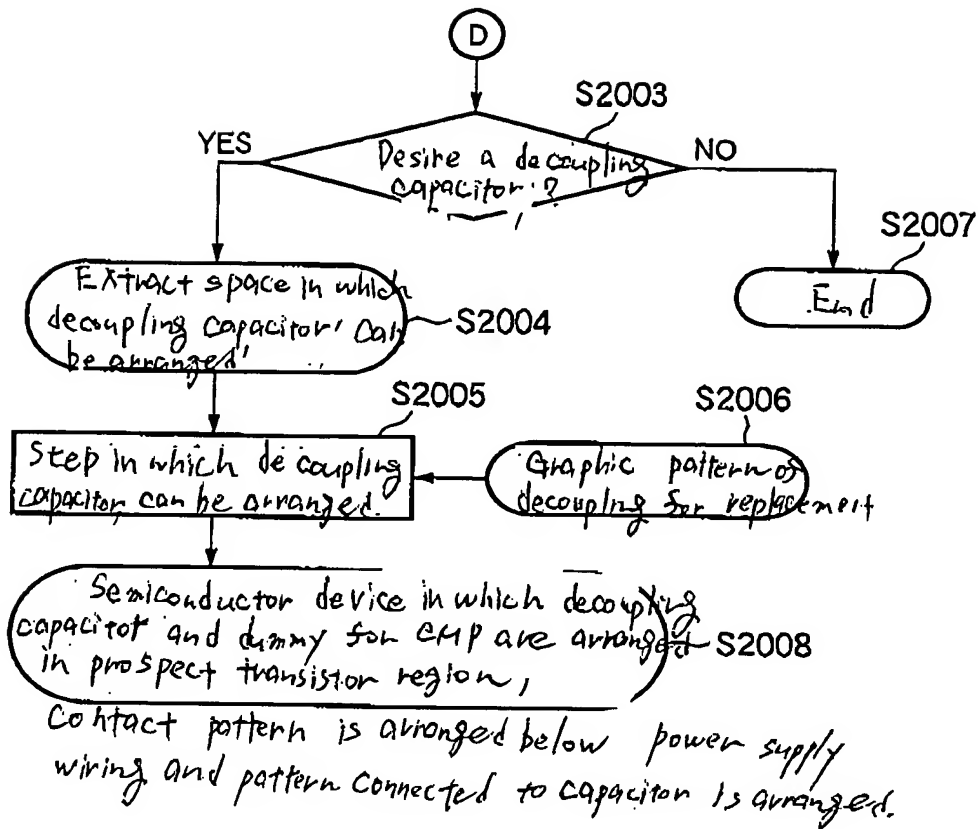 D
S2003
YES
Desire a decoupling
capacitor?
NO
S2007
End
Extract space in which
decoupling capacitor can
be arranged
S2004
S2005
Step in which decoupling
capacitor can be arranged.
S2006
Graphic pattern of
decoupling for replacement
Semiconductor device in which decoupling
capacitor and dummy for CMP are arranged
in prospect transistor region,
S2008
Contact pattern is arranged below power supply
wiring and pattern connected to capacitor is arranged.